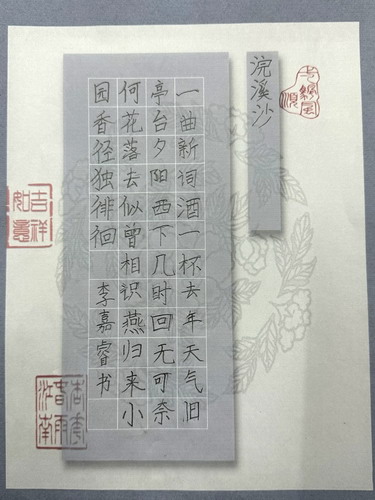 浣溪沙
一曲新词酒一杯去年天气旧
亭台夕阳西下几时回无可奈
何花落去似曾相识燕归来小
园香径独徘徊 李嘉睿书
吉祥
如意
杏花
春雨
江南